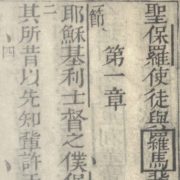 聖保羅使徒與羅馬輩
第一章
節一
耶穌基利士督之僕保
其所昔以先知輩許
四